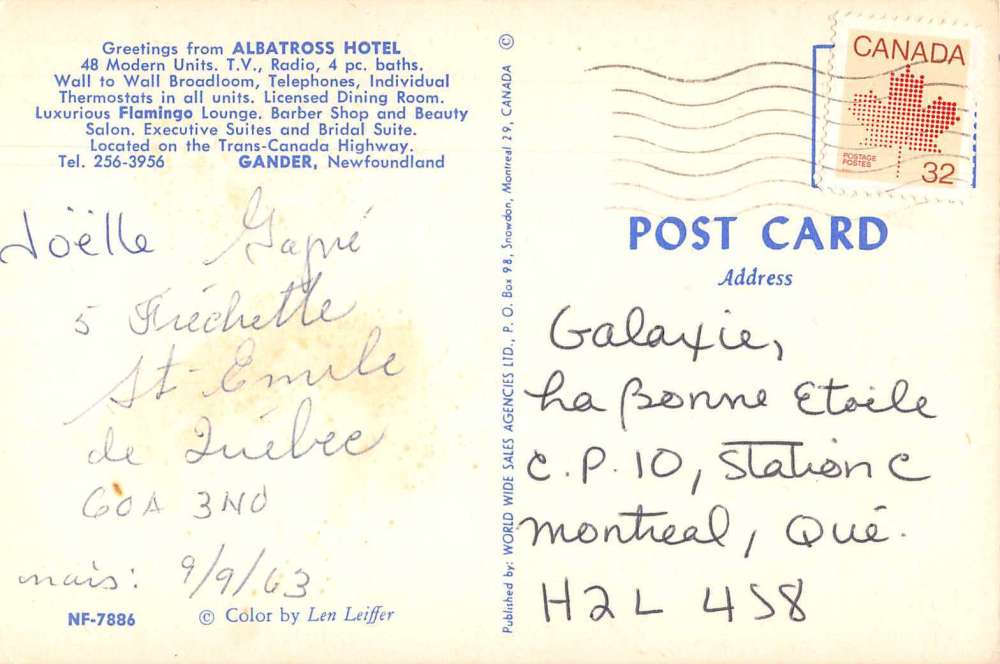 Greetings from ALBATROSS HOTEL
48 Modern Units. T.V., Radio, 4 pc. baths.
Wall to Wall Broadloom, Telephones, Individual
Thermostats in all units. Licensed Dining Room.
Luxurious Flamingo Lounge. Barber Shop and Beauty
Salon. Executive Suites and Bridal Suite.
Located on the Trans-Canada Highway.
Tel. 256-3956 GANDER, Newfoundland
Joëlle
5 Fréchette
St-Emile
de Québec
G0A 3N0
9/9/63
NF-7886 © Color by Len Leiffer
Published by: WORLD WIDE SALES AGENCIES LTD., P. O. Box 98, Snowdon, Montreal 29, CANADA ©
CANADA
POSTAGE
POSTES
32
POST CARD
Address
Galaxie,
La Bonne Etoile
C.P. 10, Station C
Montreal, Qué.
H2L 4S8